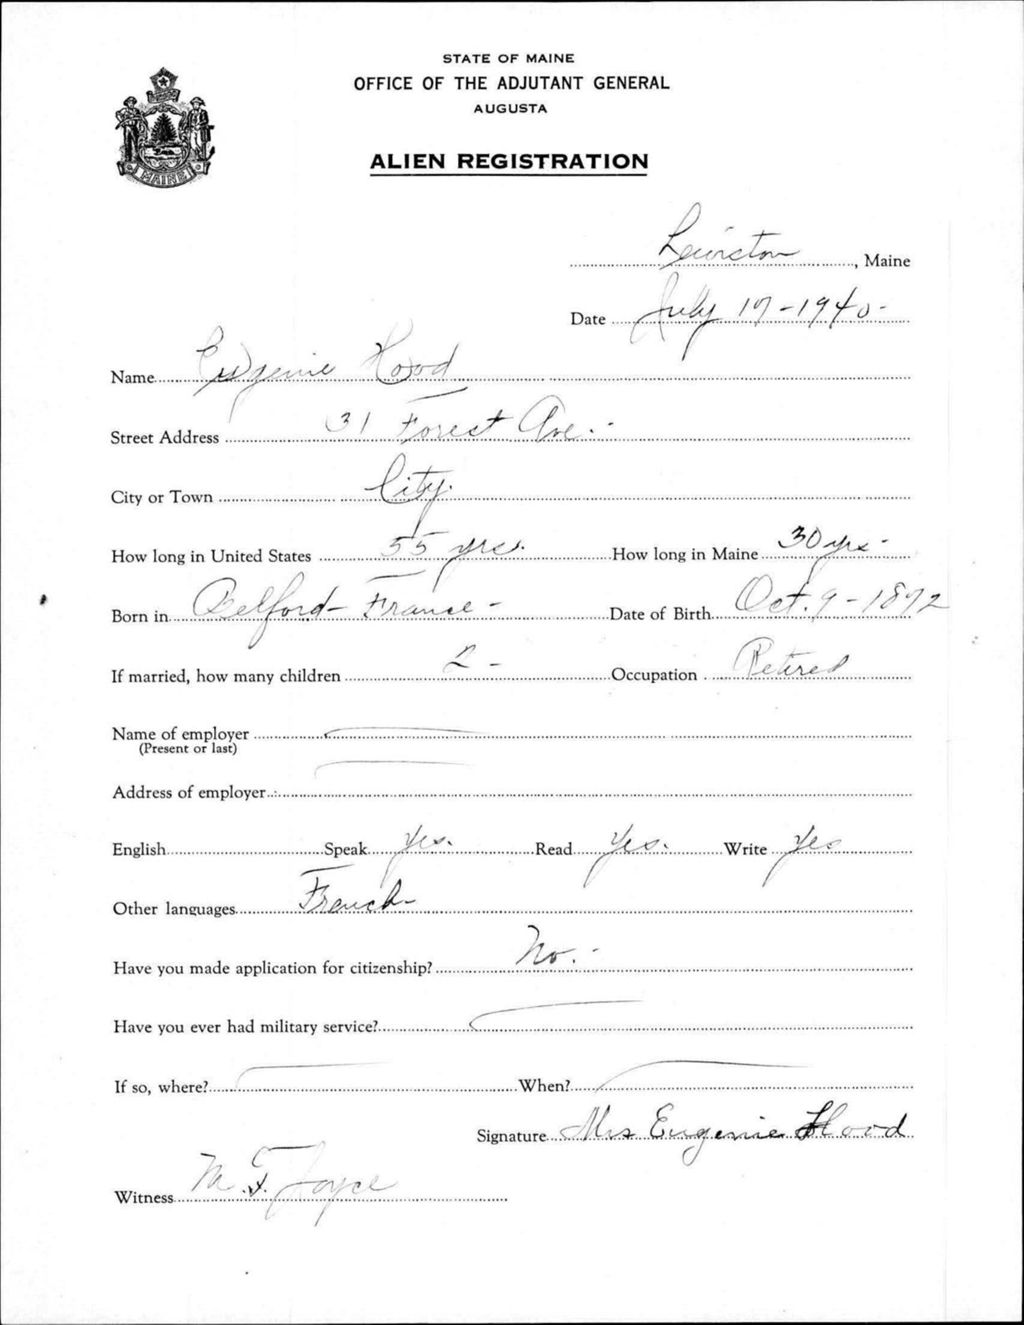 STATE OF MAINE
OFFICE OF THE ADJUTANT GENERAL
AUGUSTA
ALIEN REGISTRATION
MAINE
Lewiston, Maine
Date July 17-1940-
Name Eugenie Hood
Street Address 31 Forest Ave.-
City or Town City.
How long in United States 55 yrs. How long in Maine 30 yrs-
Born in Belford- France- Date of Birth Oct. 9-1872
If married, how many children 2- Occupation Retired
Name of employer
(Present or last)
Address of employer
English Speak Yes. Read Yes. Write Yes
Other languages French-
Have you made application for citizenship? No.-
Have you ever had military service?
If so, where? When?
Signature Mrs Eugenie Hood
Witness M. F. Joyce